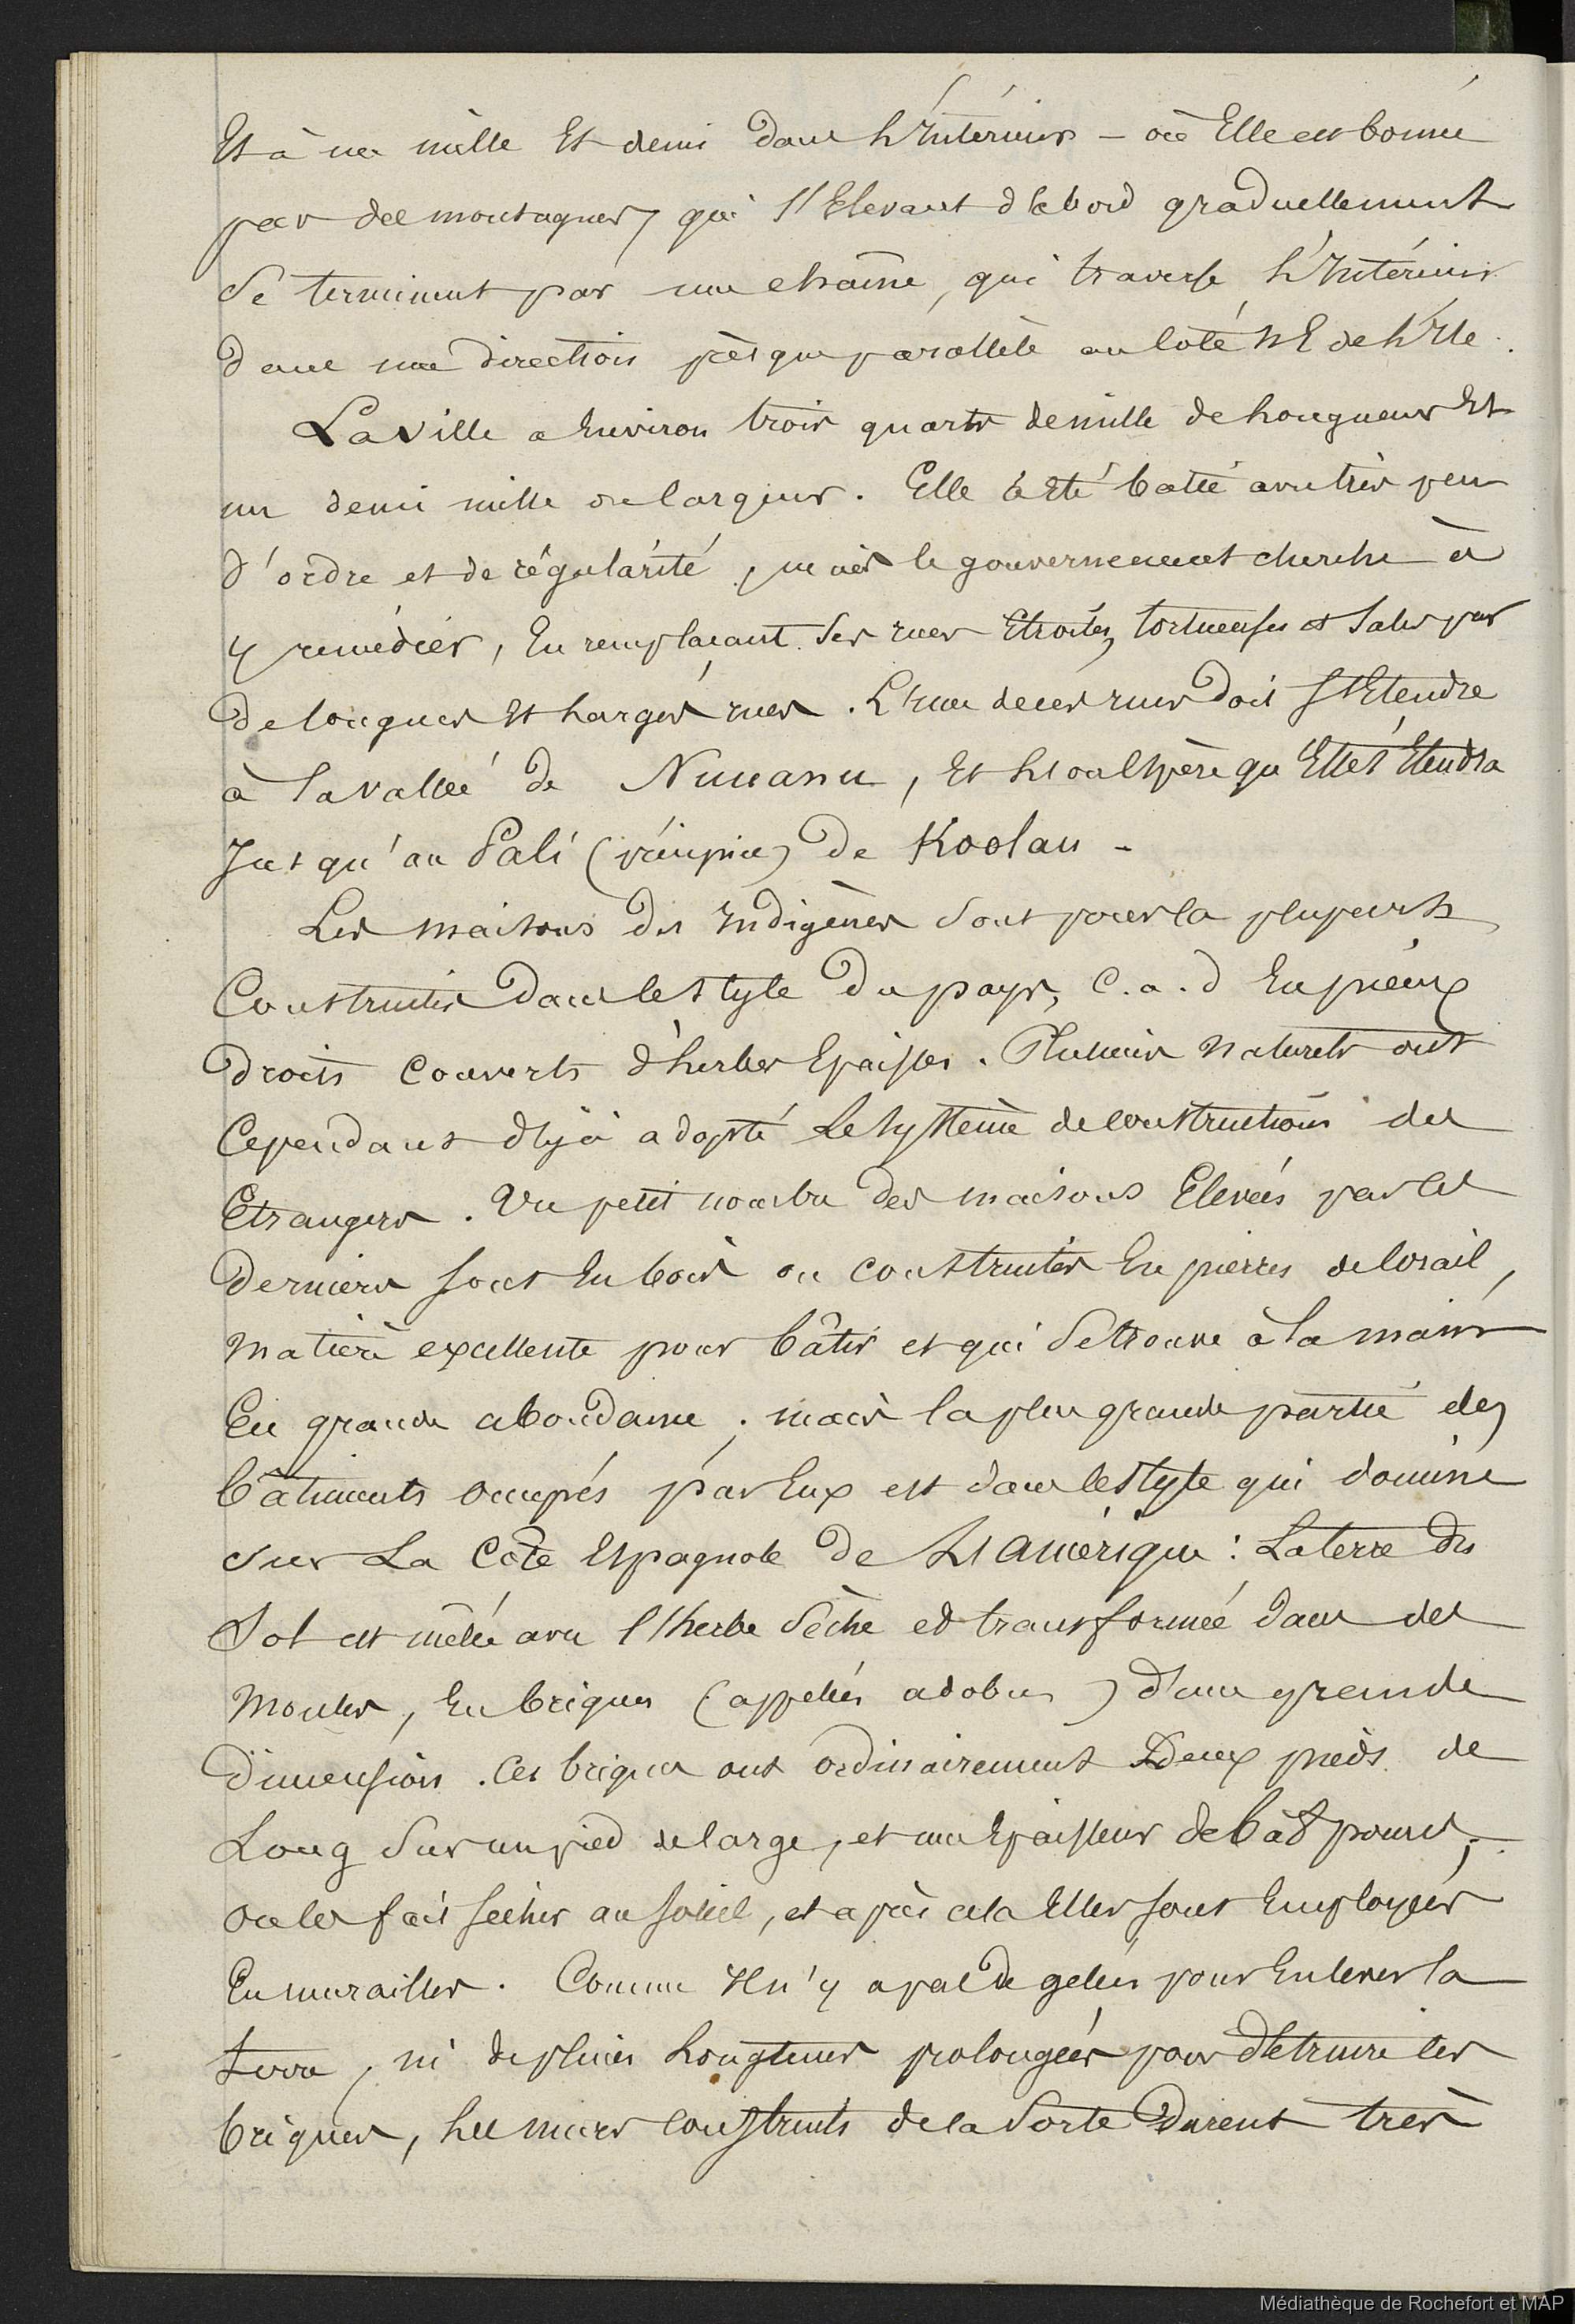 Et à un mille Et demi dans L'Intérieur – où Elle est bornée
par des montagnes, qui s'Elevant d'abord graduellement
se terminent par une chaîne, qui traverse L'Intérieur
dans une direction pèsque parallèle au Coté NE de L'Ile.
La Ville a Environ trois quarts de mille de Longueur Et
un demi mille de largeur. Elle a Eté batie avec très peu
d'ordre et de régularité, mais le gouvernement cherche à
y remédier, En remplacant ses rues Etroites, tortueuses et sales par
de longues Et Larges rues. L'une de ces rues doit s'Etendre
à la vallée de Nuuanu, Et L'on Espère qu'Elle s'Etendra
Jusqu'au Pali (précipice) de Koolau –
Les maisons des Indigènes sont pour la plupart
Construites dans le style du pays, C.a.d En pieux
droits Couverts d'herbes Epaisses. Plusieurs Naturels ont
Cependant déjà adopté Le système de constructions des
Etrangers. Un petit nombre des maisons Elevées par ces
derniers sont En bois ou construites En pierres de Corail,
matière excellente pour bâtir et qui se trouve à la main
En grande abondance; mais la plus grande partie des
bâtiments occupés par Eux est dans le style qui domine
sur La Côte Espagnole de L'Amérique: La terre du
Sol est mêlée avec l'herbe Sèche et transformée dans des
Moules, En briques (appelées adobes) d'une grande
dimension. Ces briques ont ordinairement Deux pieds de
Long sur un pied de large, et une Epaisseur de 6 à 8 pouces;
on les fait sécher au soleil, et après cela Elles sont Employées
En murailles. Comme Il n'y a pas de gelées pour Enlever la
terre, ni de pluies Longtemps prolongées pour détruire les
briques, Les murs Construits de la Sorte Durent très
Médiathèque de Rochefort et MAP